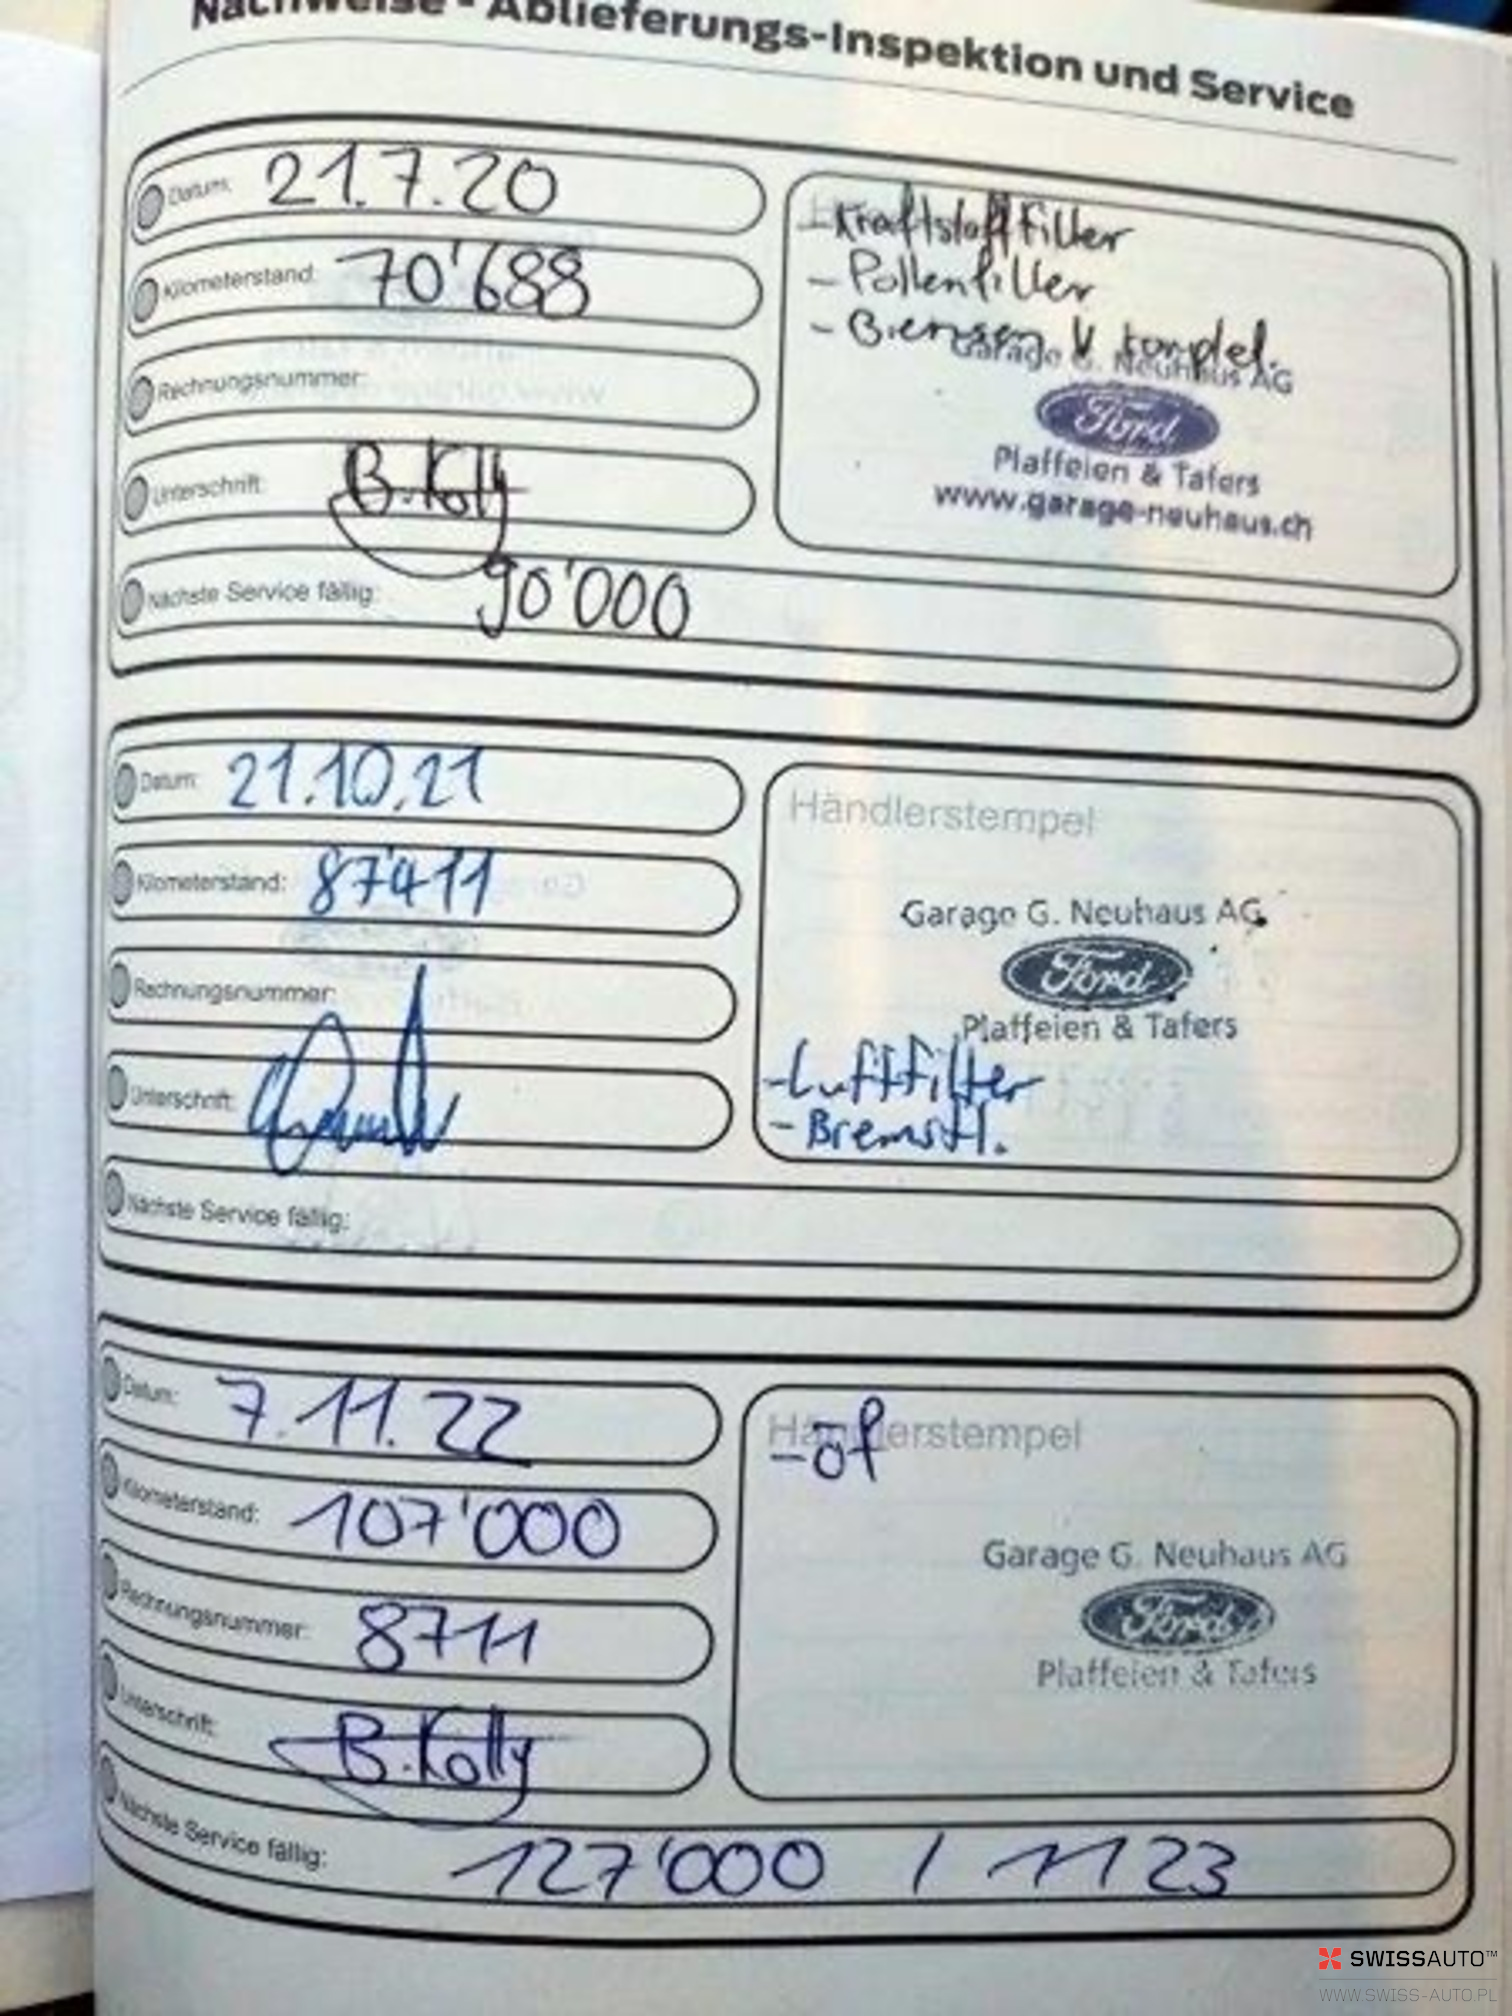 Nachweise - Ablieferungs-Inspektion und Service
Datum: 21.7.20
Kilometerstand: 70'688
Rechnungsnummer:
Unterschrift: B. Kolly
Nächste Service fällig: 90'000
- Kraftstofffilter
- Pollenfilter
- Bremsen V komplet.
Garage G. Neuhaus AG
Ford
Plaffeien & Tafers
www.garage-neuhaus.ch
Datum: 21.10.21
Kilometerstand: 87'411
Rechnungsnummer:
Unterschrift:
Nächste Service fällig:
Händlerstempel
Garage G. Neuhaus AG
Ford
Plaffeien & Tafers
- Luftfilter
- Bremsfl.
Datum: 7.11.22
Kilometerstand: 107'000
Rechnungsnummer: 8711
Unterschrift: B. Kolly
Nächste Service fällig: 127'000 / 11 23
Händlerstempel
- öf
Garage G. Neuhaus AG
Ford
Plaffeien & Tafers
SWISSAUTO™
WWW.SWISS-AUTO.PL